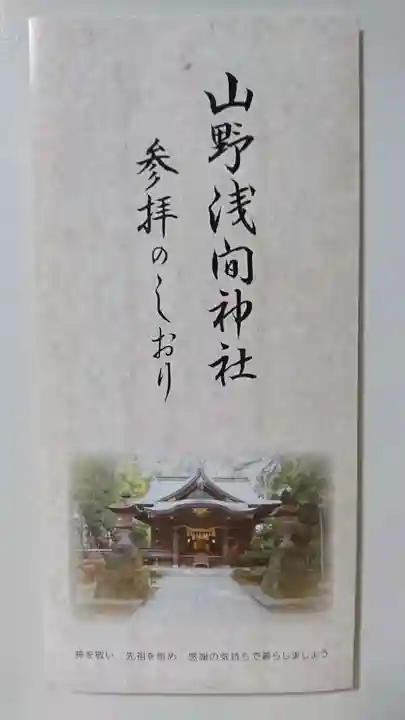 山野浅間神社
参拝のしおり
神を敬い 先祖を崇め 感謝の気持ちで暮らしましょう